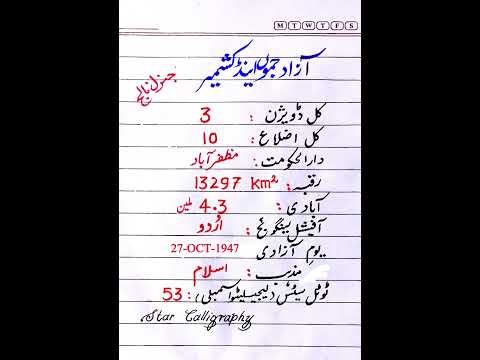 M T W T F S
آزاد جموں اینڈ کشمیر
جنرل نالج
کل ڈویژن : 3
کل اضلاع : 10
دارالحکومت : مظفرآباد
رقبہ : 13297 km²
آبادی : 4.3 ملین
آفیشل لینگوئج : اُردو
یومِ آزادی 27-OCT-1947
مذہب : اسلام
ٹوٹل سیٹس (لیجسلیٹو اسمبلی) : 53
Star Calligraphy